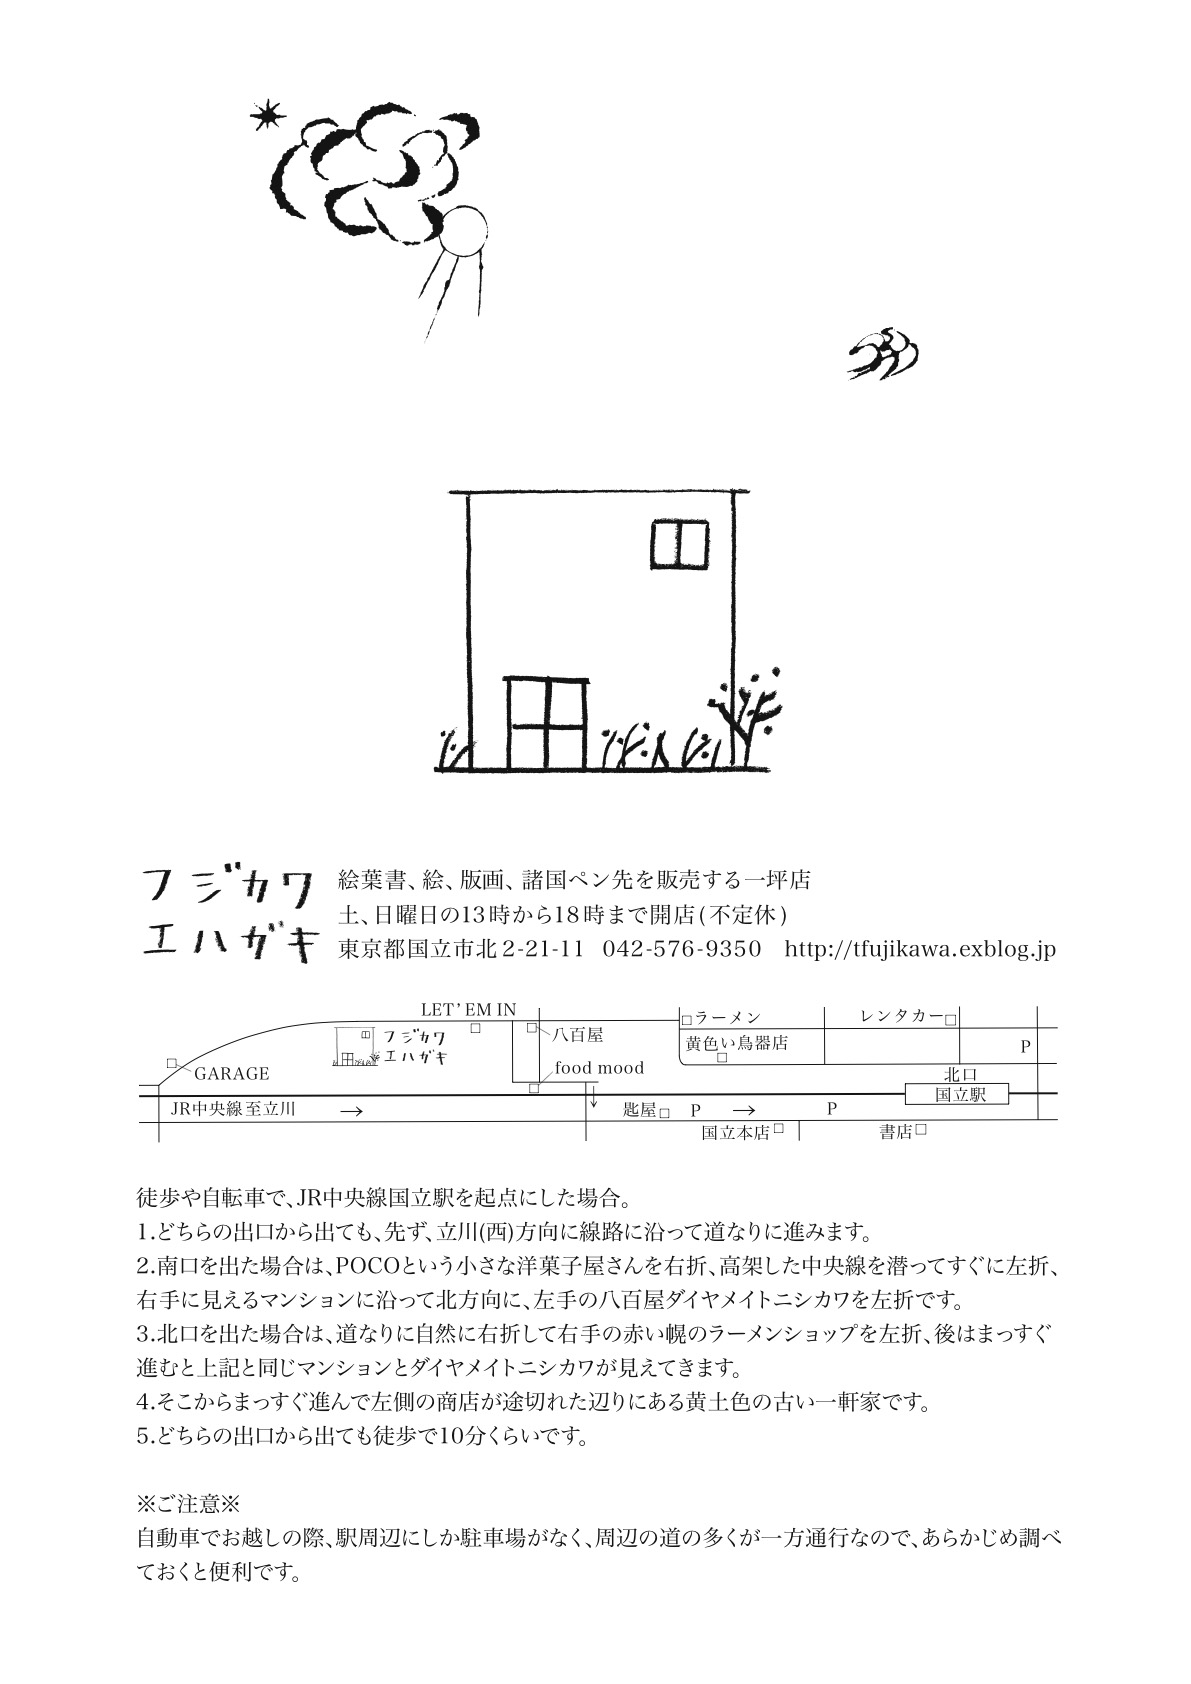 フジカワ
エハガキ
絵葉書、絵、版画、諸国ペン先を販売する一坪店
土、日曜日の13時から18時まで開店(不定休)
東京都国立市北2-21-11 042-576-9350 http://tfujikawa.exblog.jp
LET'EM IN
ラーメン
レンタカー
フジカワ
エハガキ
八百屋
黄色い鳥器店
P
GARAGE
food mood
北口
国立駅
JR中央線至立川
→
匙屋
P
→
P
国立本店
書店
徒歩や自転車で、JR中央線国立駅を起点にした場合。
1.どちらの出口から出ても、先ず、立川(西)方向に線路に沿って道なりに進みます。
2.南口を出た場合は、POCOという小さな洋菓子屋さんを右折、高架した中央線を潜ってすぐに左折、
右手に見えるマンションに沿って北方向に、左手の八百屋ダイヤメイトニシカワを左折です。
3.北口を出た場合は、道なりに自然に右折して右手の赤い幌のラーメンショップを左折、後はまっすぐ
進むと上記と同じマンションとダイヤメイトニシカワが見えてきます。
4.そこからまっすぐ進んで左側の商店が途切れた辺りにある黄土色の古い一軒家です。
5.どちらの出口から出ても徒歩で10分くらいです。
※ご注意※
自動車でお越しの際、駅周辺にしか駐車場がなく、周辺の道の多くが一方通行なので、あらかじめ調べ
ておくと便利です。